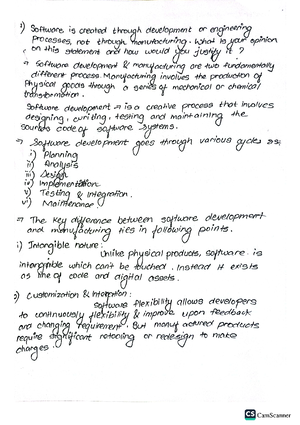 1) Software is created through development or engineering
processes, not through manufacturing. What is your opinion
on this statement and how would you justify it ?
→ Software development & manufacturing are two fundamentally
different process. Manufacturing involves the production of
Physical goods through a series of mechanical or chemical
transformation.
Software development → is a creative process that involves
designing, writing, testing and maintaining the
code of software systems.
→ Software development goes through various cycles as;
i) Planning
ii) Analysis
iii) Design
iv) Implementation
v) Testing & Integration
vi) Maintenance
→ The key difference between software development
and manufacturing lies in following points.
i) Intangible nature:
Unlike physical products, software is
intangible which can't be touched. Instead it exists
as line of code and digital assets.
2) Customization & :
software flexibility allows developers
to continuously flexibility & improve upon feedback
and changing requirement. But manufactured products
require significant retooling or redesign to make
changes.
CS CamScanner